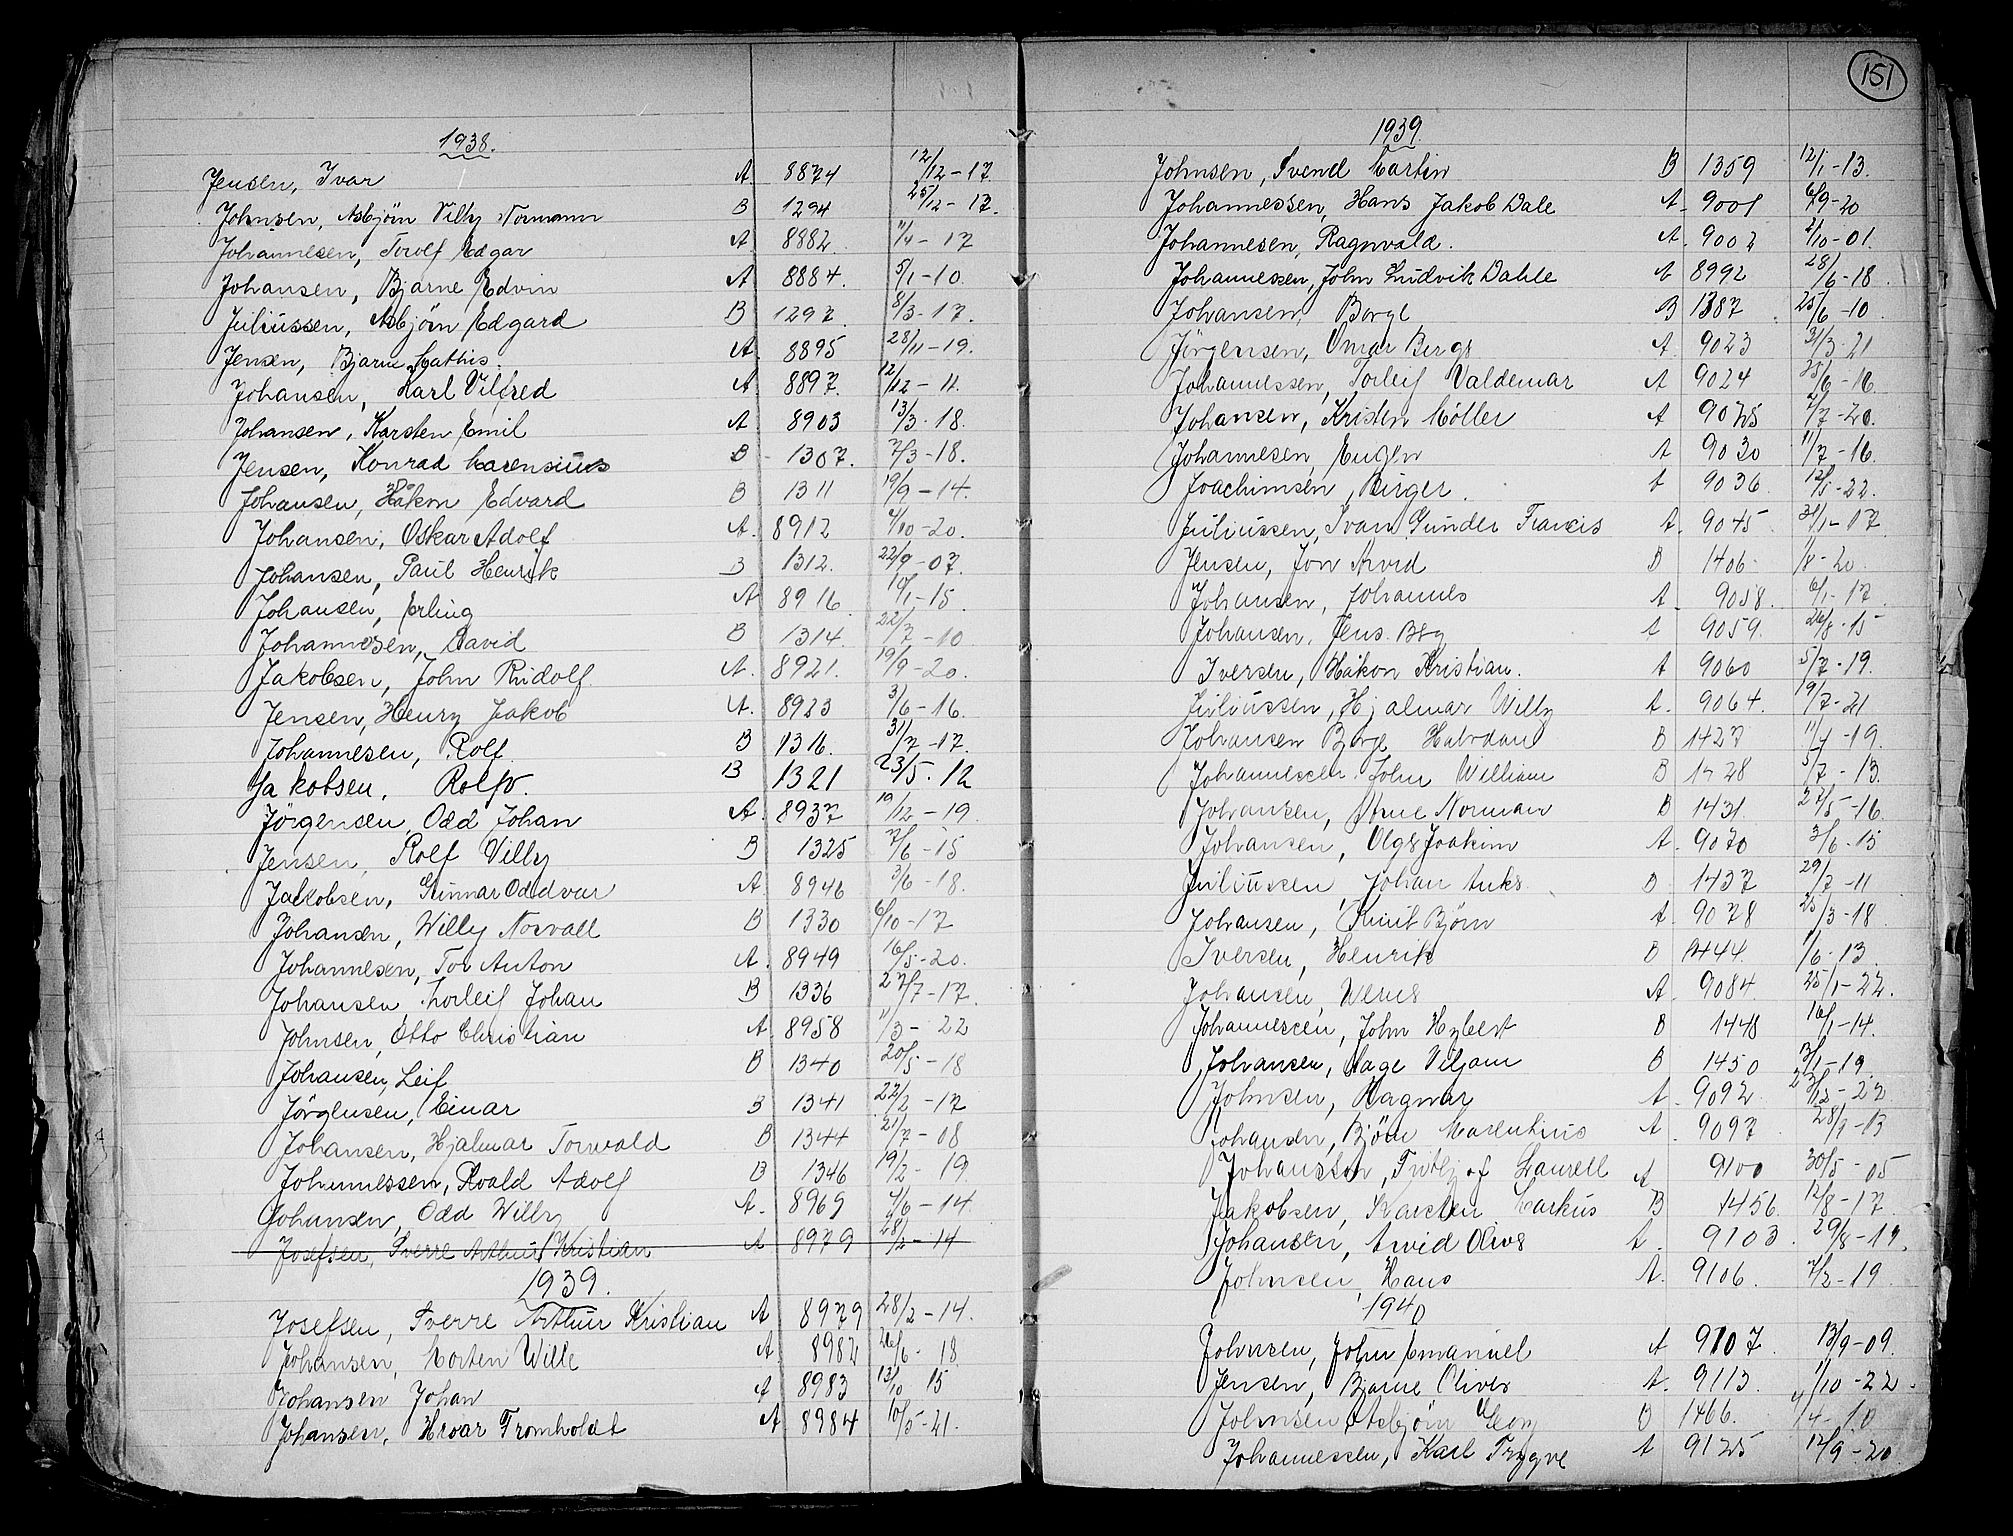 1938.
Jensen, Ivar A. 8874 12/12-17.
Johnsen, Asbjörn Villy Normann B 1294 25/12-17.
Johannesen, Torolf Edgar A 8882. 11/4-17
Johansen, Bjarne Edvin A 8884. 5/1-10.
Juliussen, Asbjörn Edgard B 1297. 8/3-17.
Jensen, Bjarne Mathis. A. 8895 28/11-19.
Johansen, Karl Vilfred A. 8897. 12/12-11.
Johansen, Karsten Emil A. 8903 13/3-18.
Jensen, Konrad Marensius B 1307. 2/3-18.
Johansen, Håkon Edvard B 1311 19/9-14.
Johansen, Oskar Adolf A. 8912 4/10-20.
Johansen, Paul Henrik B 1312. 22/9-07.
Johansen, Erling A 8916 10/1-15
Johannesen, David B 1314. 22/7-10
Jakobsen, John Rudolf A. 8921. 19/9-20.
Jensen, Henry Jakob A. 8923 3/6-16.
Johannesen, Rolf. B 1316. 31/7-17.
Jakobsen, Rolf. B 1321 23/5.12
Jörgensen Odd Johan A. 8937 19/12-19.
Jensen, Rolf Villy B 1325 2/6-15
Jakobsen, Gunnar Oddvar A 8946 3/6-18.
Johansen, Willy Norvall B 1330 6/10-17
Johannesen, Tor Anton A. 8949 16/5-20.
Johansen, Torleif Johan B 1336 27/7-17.
Johnsen, Otto Christian A. 8958 11/3-22
Johansen, Leif B 1340 20/5-18
Jörgensen, Einar B 1341 22/2-17
Johansen, Hjalmar Torvald B 1344 21/7-08
Johannessen, Roald Adolf B 1346 19/2-19.
Johansen, Odd Willy A. 8969 4/6-14.
Josefsen, Sverre Arthur Kristian A 8979 28/2-14
1939.
Josefsen, Sverre Arthur Kristian A 8979 28/2-14.
Johansen, Morten Wille A 8982 26/6-18
Johansen Johan A 8983 13/10 15
Johansen, Hroar Tromholdt A 8984 10/5-21.
151
1939.
Johnsen, Svend Martin B 1359 12/1-13.
Johannessen, Hans Jakob Dale A. 9001 6/9-20
Johannesen, Ragnvald. A. 9002 2/10-01.
Johannessen, John Ludvik Dahle A 8992 28/6-18.
Johansen, Borge B 1387. 25/6-10.
Jörgensen, Omar Berge A. 9023 31/3-21
Johannessen, Torleif Valdemar A 9024 25/6-16.
Johansen, Kristen Möller A 9025 2/7-20.
Johannesen, Eugen A 9030 11/7-16.
Joachimsen, Birger. A 9036. 12/5-22.
Juliussen, Ivan Gunder Francis A. 9045 31/1-07.
Jensen, Jon Arvid B 1406. 1/8-20.
Johansen, Johannes A. 9058. 6/1-17.
Johansen, Jens. Bey A 9059. 26/8-15
Iversen, Håkon Kristian. A 9060 5/7-19.
Juliussen, Hjalmar Willy A. 9064. 19/7-21
Johansen Borge Halvdan B 1427 11/4-19.
Johannessen. John William B 1428 5/7-13.
Johansen, Arne Norman B 1431. 27/5-16.
Johansen, Olga Joakim A. 9070 3/6-15
Juliussen, Johan B 1437 29/7-11
Johansen, Knut Björn A. 9078 25/3-18.
Iversen, Henrik B 1444. 1/6-13.
Johansen, A. 9084. 25/1-22.
Johannessen, John Hybert B 1448 16/1-14.
Johansen, Aage Viljam B 1450 13/1-19.
Johnsen, Ragnar A. 9092. 23/12-22
Johansen, Björn Marentius A. 9097 28/9-13
Johansen, Fritjof Laurell A 9100 30/5-05
Jakobsen, Karsten Markus B 1456. 12/8-17.
Johansen, Arvid Olins A. 9103. 29/8-19.
Johnsen, Hans A. 9106. 7/2-19.
1940
Johnsen, John Emanuel A 9107. 13/9-09.
Jensen, Bjarne Oliver A. 9113. 1/10-22.
Johnsen Asbjörn Georg B 1466. 4/4-10
Johannessen, Karl Trygve A 9125 12/9-20